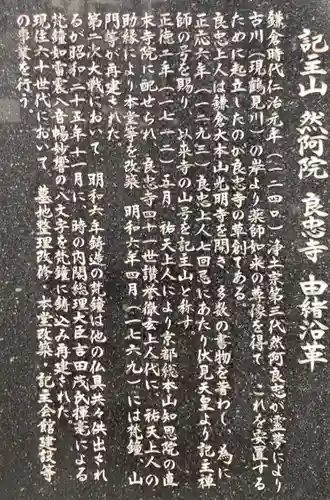 記主山 然阿院 良忠寺 由緒沿革
鎌倉時代仁治元年(一二四〇)浄土宗第三代然阿良忠が霊夢により
古川(現鶴見川)の岸より薬師如来の尊像を得て、これを安置する
ために起立したのが良忠寺の草創である。
良忠上人は鎌倉大本山光明寺を開き、多数の書物を著わし、為に
正応六年(一二九三)良忠上人七回忌にあたり伏見天皇より記主禅
師の号を賜り、以来寺の山号を記主山と称す。
正徳二年(一七一二)五月、祐天上人により京都総本山知恩院の直
末寺院に配せられ、良忠寺四十一世讃誉徹玄上人代に、祐天上人の
助縁により本堂等を改築、明和六年四月(一七六九)には梵鐘、山
門等が再建された。
第二次大戦において、明和六年鋳造の梵鐘は他の仏具共々供出され
るが昭和二十五年十一月に、時の内閣総理大臣吉田茂氏揮毫による
梵鐘如雷震八音暢妙響の八文字を梵鐘に鋳込み再建された。
現住六十世代において、墓地整理改修・本堂改築・記主会館建設等
の事業を行う。